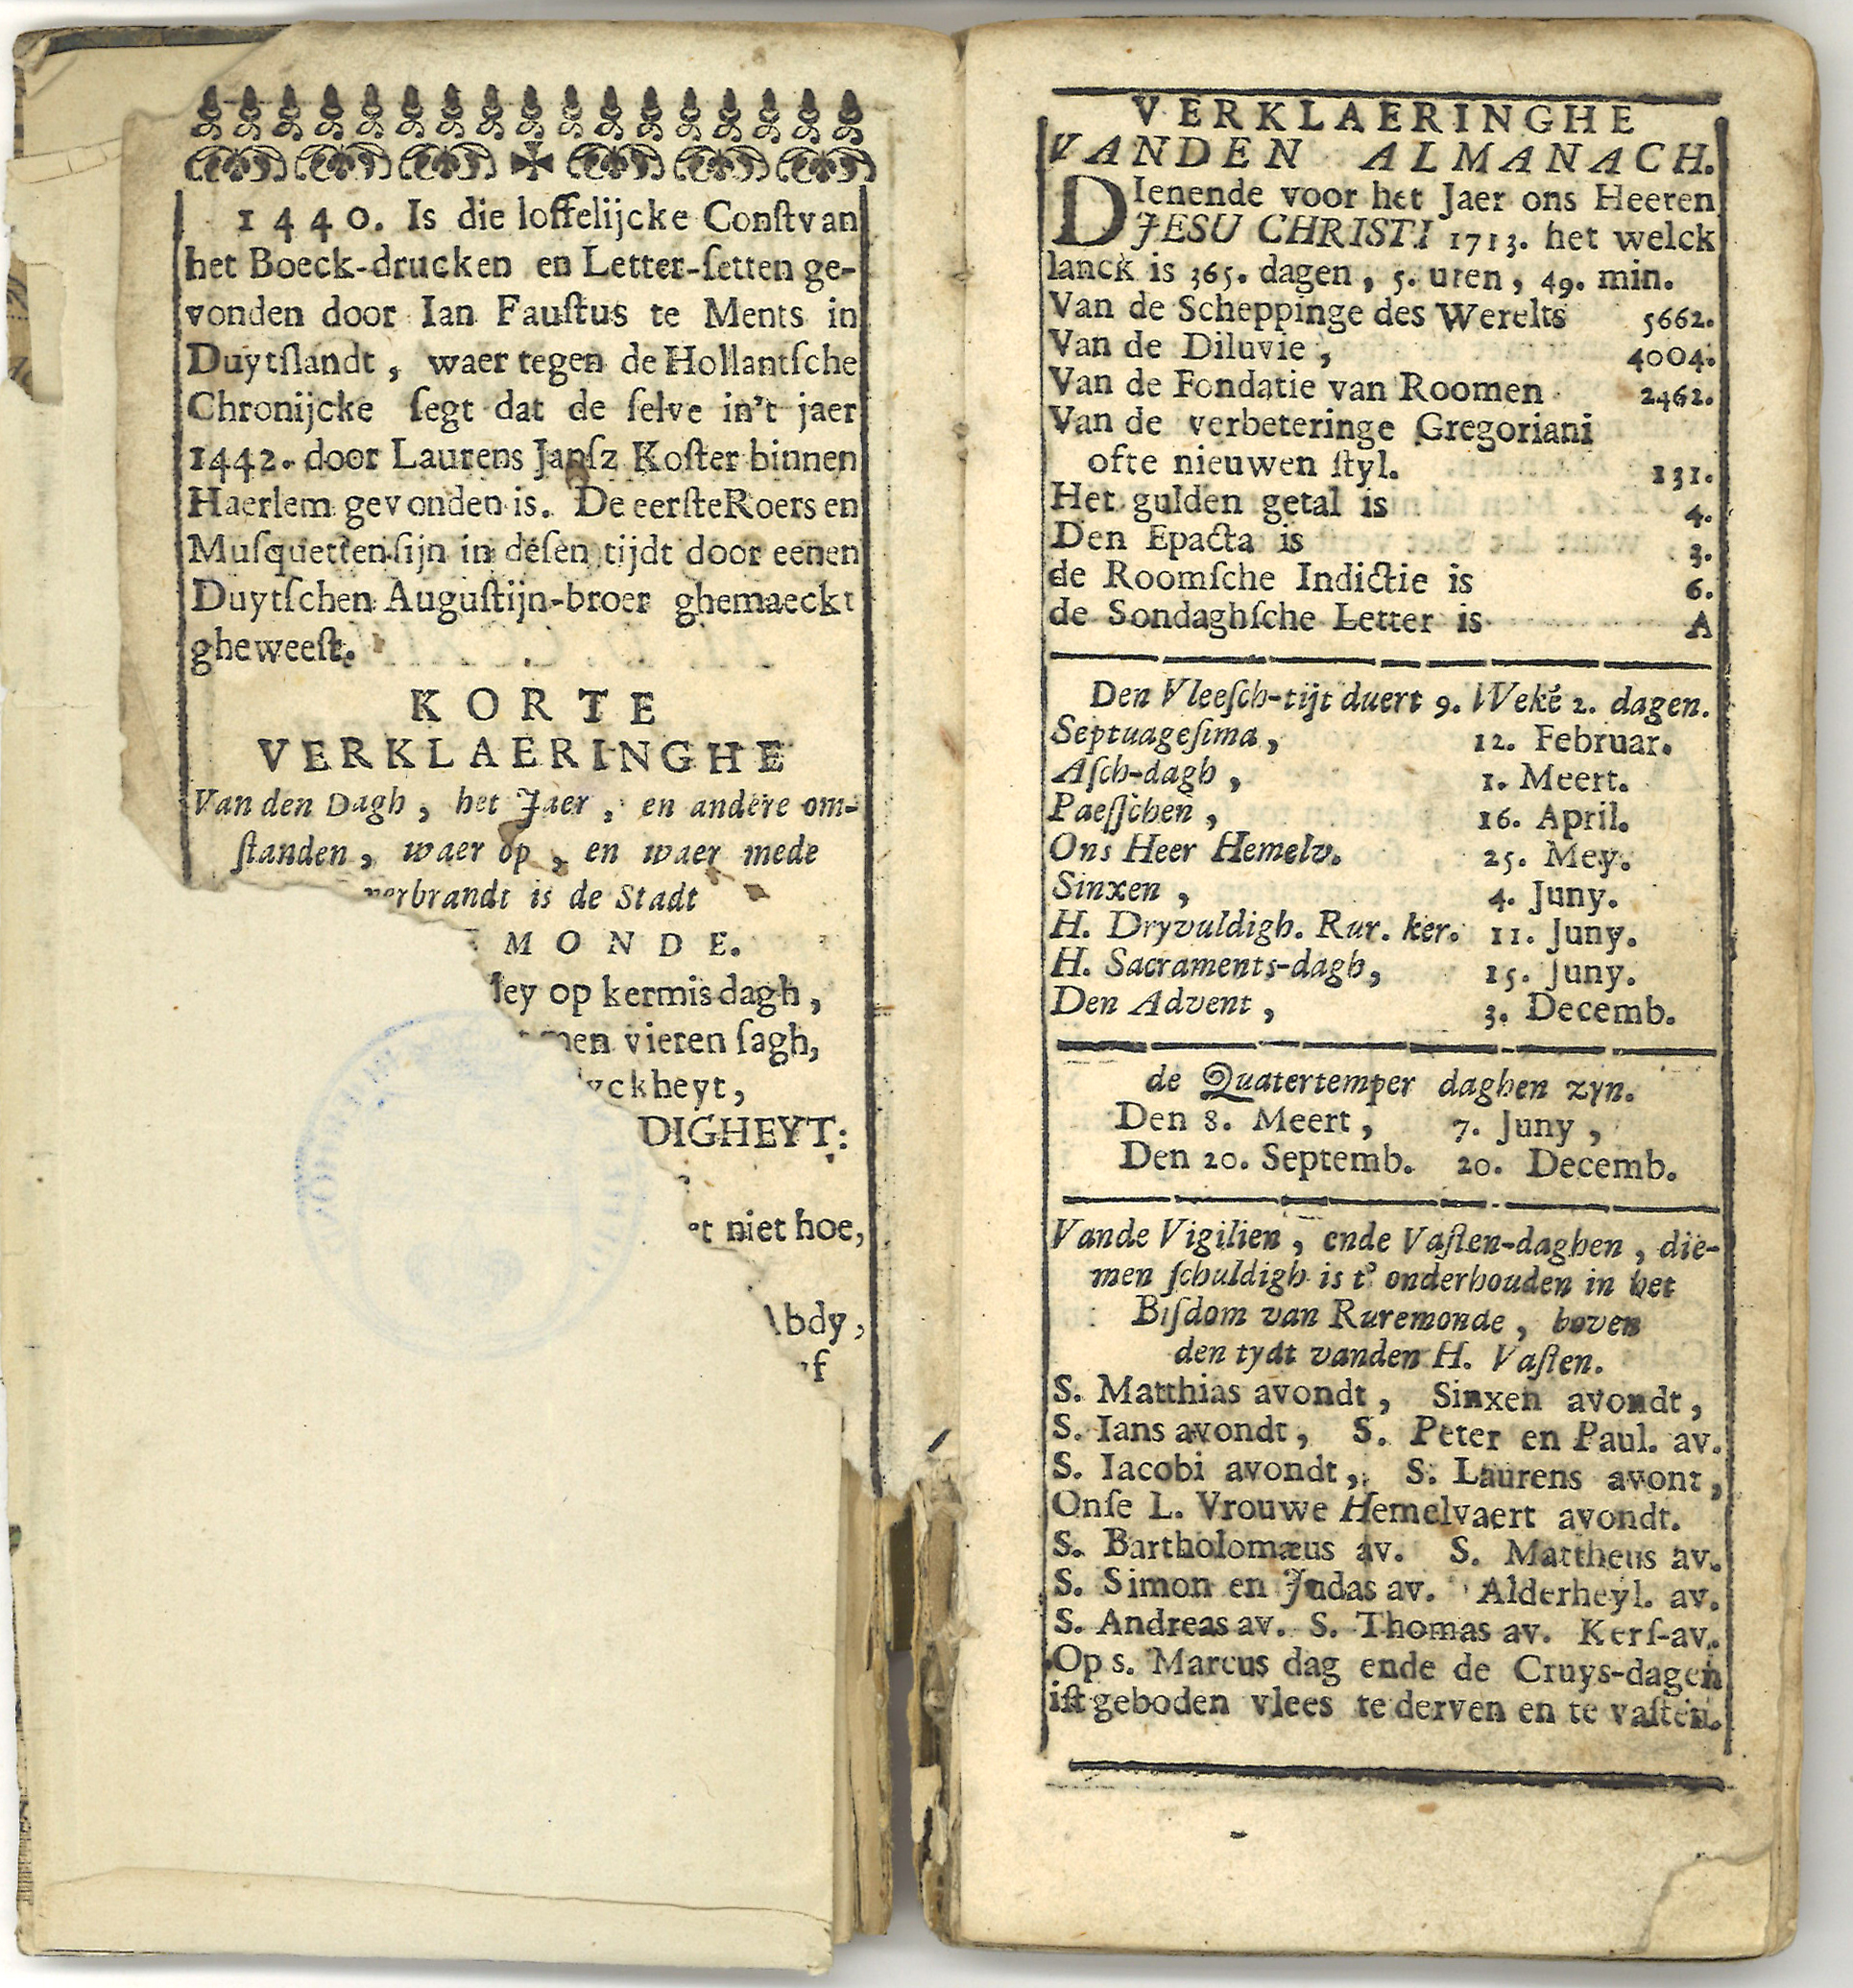 1440. Is die loffelijcke Constvan
het Boeck-drucken en Letter-setten ge-
vonden door Ian Faustus te Ments in
Duytslandt, waer tegen de Hollantsche
Chronijcke segt dat de selve in't jaer
1442. door Laurens Jansz Koster binnen
Haerlem gevonden is. De eersteRoers en
Musquetten sijn in desen tijdt door eenen
Duytschen Augustijn-broer ghemaeckt
gheweest.
KORTE
VERKLAERINGHE
Van den Dagh, het Jaer, en andere om-
standen, waer op, en waer mede
verbrandt is de Stadt
MONDE.
op kermis dagh,
men vieren sagh,
ckheyt,
DIGHEYT:
niet hoe,
Abdy,
VERKLAERINGHE
VANDEN ALMANACH.
DIenende voor het Jaer ons Heeren
JESU CHRISTI 1713. het welck
lanck is 365. dagen, 5. uren, 49. min.
Van de Scheppinge des Werelts 5662.
Van de Diluvie, 4004.
Van de Fondatie van Roomen 2462.
Van de verbeteringe Gregoriani
ofte nieuwen styl. 131.
Het gulden getal is 4.
Den Epacta is 3.
de Roomsche Indictie is 6.
de Sondaghsche Letter is A
Den Vleesch-tijt duert 9. Weké 2. dagen.
Septuagesima, 12. Februar.
Asch-dagh, 1. Meert.
Paesschen, 16. April.
Ons Heer Hemelv. 25. Mey.
Sinxen, 4. Juny.
H. Dryvuldigh. Rur. ker. 11. Juny.
H. Sacraments-dagh, 15. Juny.
Den Advent, 3. Decemb.
de Quatertemper daghen zyn.
Den 8. Meert, 7. Juny,
Den 20. Septemb. 20. Decemb.
Vande Vigilien, ende Vasten-daghen, die-
men schuldigh is t' onderhouden in het
Bisdom van Ruremonde, boven
den tydt vanden H. Vasten.
S. Matthias avondt, Sinxen avondt,
S. Ians avondt, S. Peter en Paul. av.
S. Iacobi avondt, S. Laurens avont,
Onse L. Vrouwe Hemelvaert avondt.
S. Bartholomæus av. S. Mattheus av.
S. Simon en Judas av. Alderheyl. av.
S. Andreas av. S. Thomas av. Kers-av.
Op s. Marcus dag ende de Cruys-dagen
ist geboden vlees te derven en te vasten.